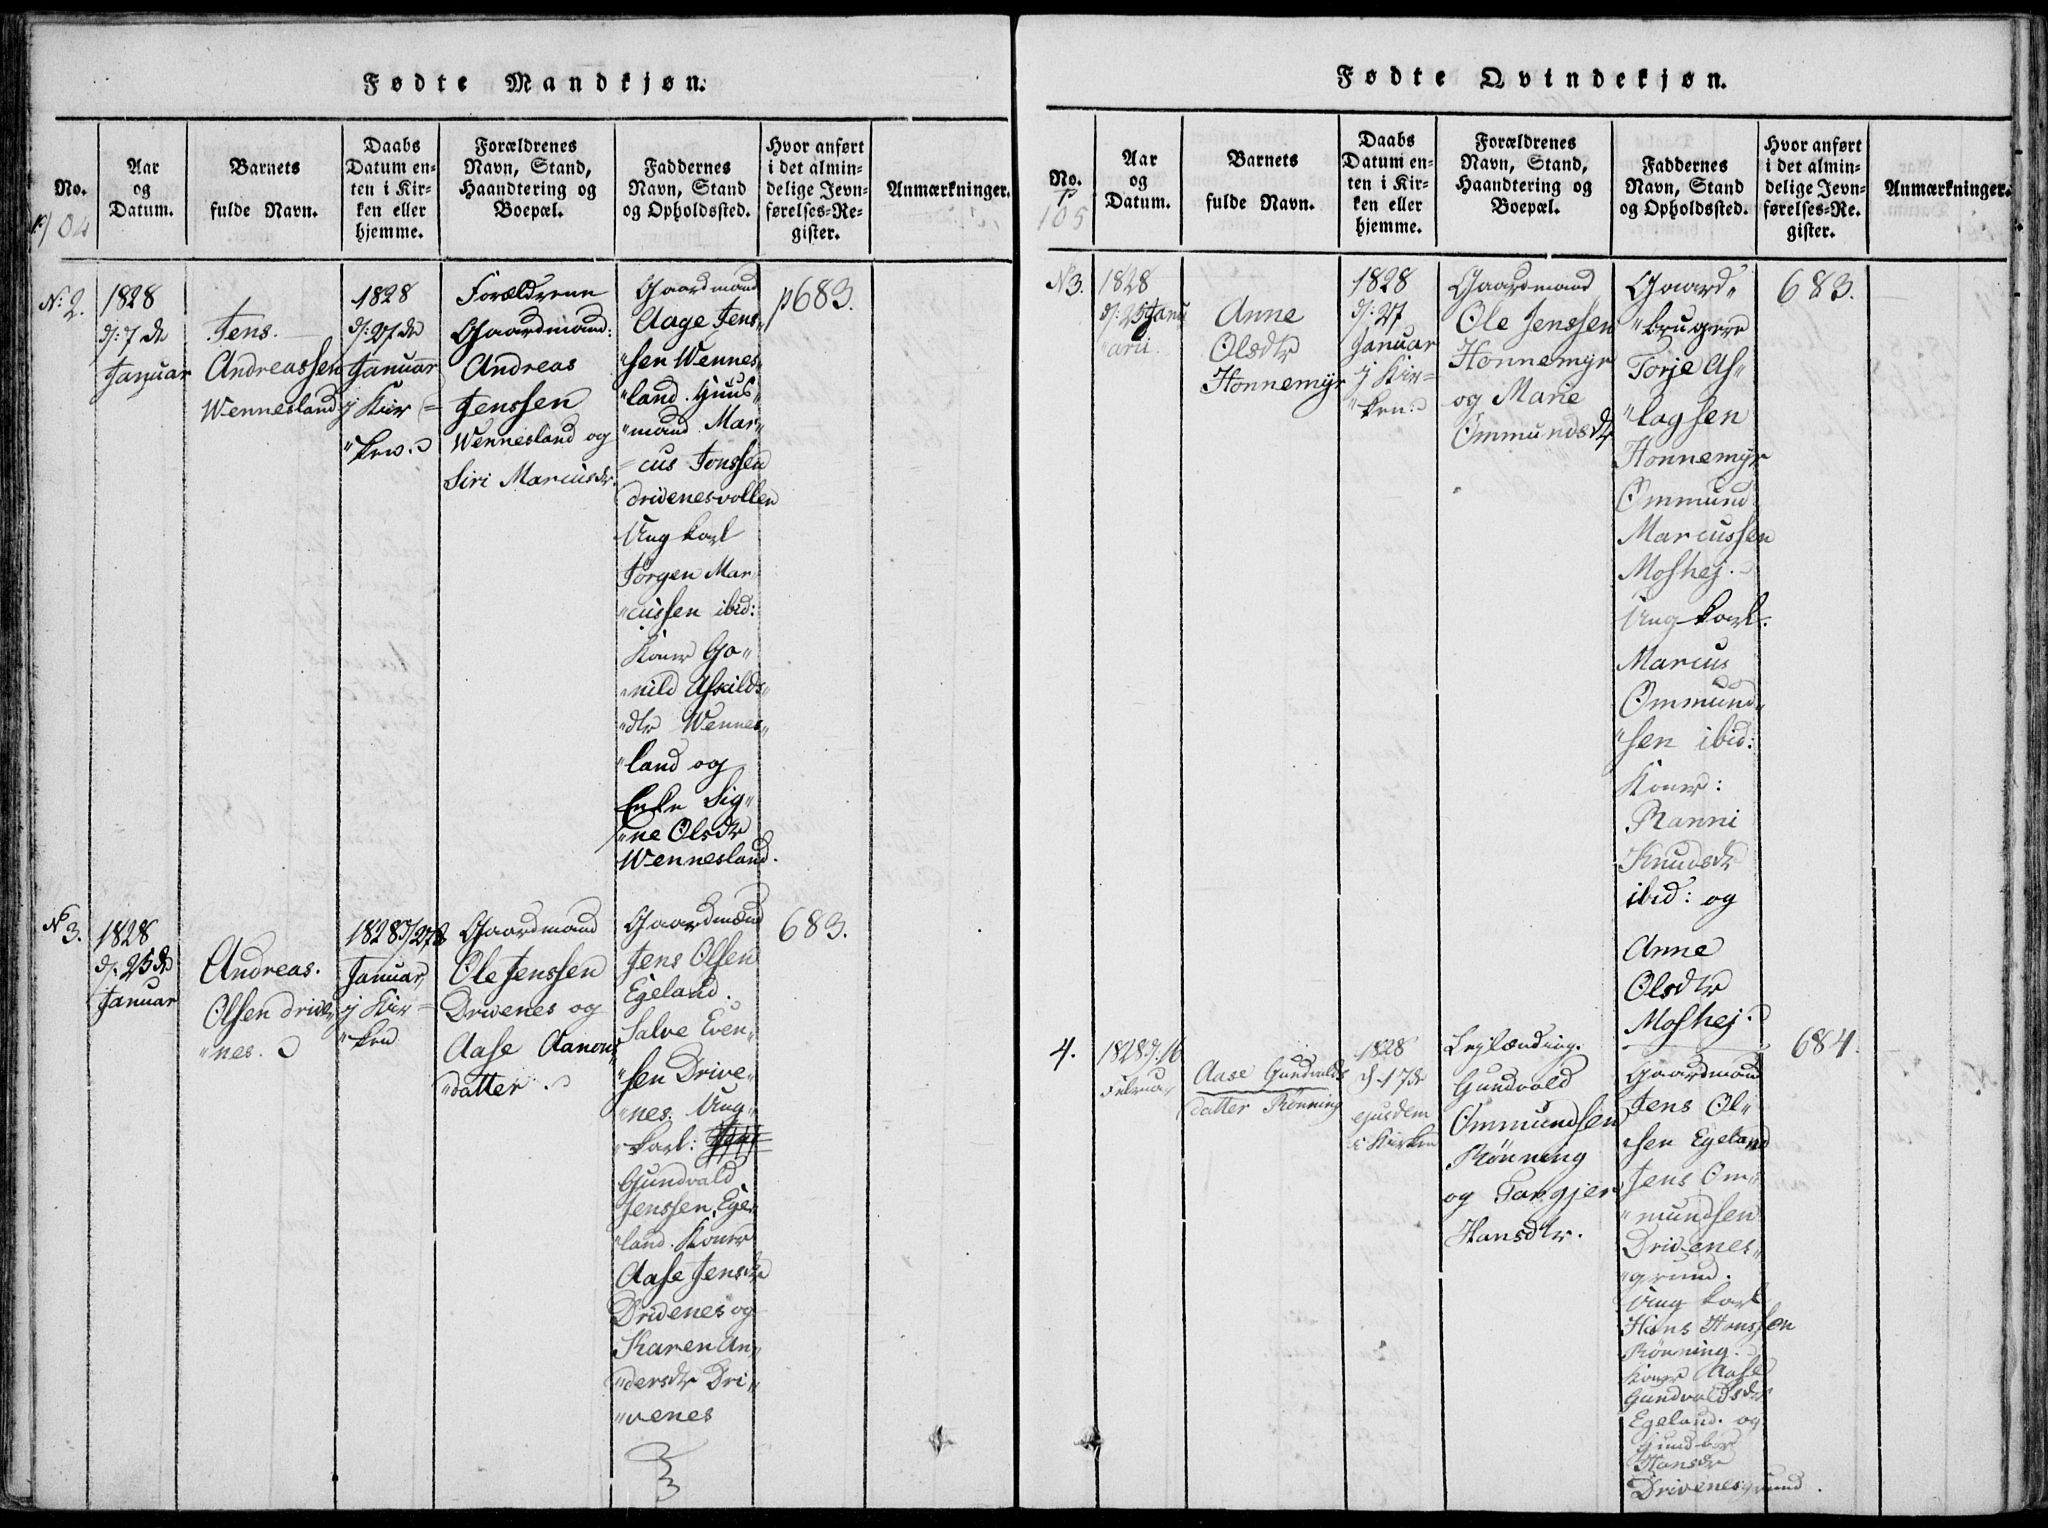 Fødte Mandkjøn.
No.
Aar
og
Datum.
Barnets
fulde Navn.
Daabs
Datum en-
ten i Kir-
ken eller
hjemme.
Forældrenes
Navn, Stand,
Haandtering og
Boepæl.
Faddernes
Navn, Stand
og Opholdssted.
Hvor anført
i det almin-
delige Jevn-
førelses-Re-
gister.
Anmærkninger.
p 104
No: 2.
1828
d: 7de
Januar
Jens
Andreassen
Wennesland
1828
d: 27de
Januar
j Kir=
"ken.
Forældrene
Gaardmand:
Andreas
Jenssen
Wennesland og
Siri Marcusdr.
Gaardmand
Aage Jens"
"sen Wennes"
"land. Huus"
"mand Mar"
=cus Jonssen
Drivenesvollen
Ung karl
Jörgen Mar"
"cussen ibid:
Koner Go"
"nild Askilds"
"dtr Wennes"
"land og
Enke Sig"
"ne Olsdtr
Wennesland.
p 683.
No 3.
1828
d. 25de
Januar
Andreas.
Olsen Drive"
"nes.
1828 d/27de
Januar
j Kir=
"ken
Gaardmand
Ole Jenssen
Drivenes og
Aase Aanons
"datter.
Gaardmand
Jens Olsen
Egeland.
Salve Even"
"sen Drive"
"nes. Ung"
"karl:
Gundvald
Jenssen Ege"
"land. Koner
Aase Jensdtr
Drivenes og
Karen An"
"dersdtr Dri"
"venes
683.
Fødte Qvindekjøn.
No.
Aar
og
Datum.
Barnets
fulde Navn.
Daabs
Datum en-
ten i Kir-
ken eller
hjemme.
Forældrenes
Navn, Stand,
Haandtering og
Boepæl.
Faddernes
Navn, Stand
og Opholdssted.
Hvor anført
i det almin-
delige Jevn-
førelses-Re-
gister.
Anmærkninger.
p
105
No 3.
1828
d: 25 Janu
"arii.
Anne
Olsdtr
Honnemyr
1828
d: 27
Januar
j Kir=
"ken.
Gaardmand
Ole Jenssen
Honnemyr
og Marie
Ommundsdtr
Gaard"
"brugere
Torje As"
"lagsen
Honnemyr
Ommund
Marcussen
Moshej.
Ung karl.
Marcus
Ommund"
"sen ibid:
Koner:
Ranni
Knudsdtr
ibid: og
Anne
Olsdtr
Moshej.
683.
4.
1828 d. 16
Februar
Aase Gundvalds
datter Rönning
1828
d 17de
ejusdem
i Kirken
Lejlænding.
Gundvald
Ommundsen
Rönning
og Tangjer
Hansdtr.
Gaardmand
Jens Ol"
"sen Egeland
Jens Om"
"mundsen
Drivenes"
"grund.
Ung karl
Hans Hanssen
Rönning.
Koner Aase
Gundvaldsdtr
Egeland. og
Gundbor
Hansdtr
Drivenesgrund.
684.